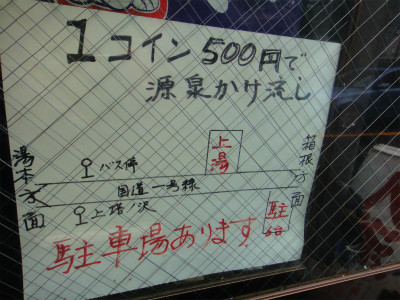 1コイン500円で
源泉かけ流し
上湯
箱根方面
湯本方面
バス停
国道一号線
上塔ノ沢
駐
6台
駐車場あります